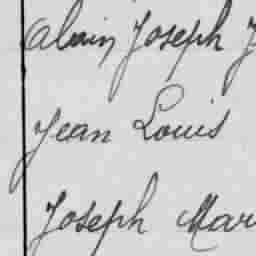 Alain Joseph J
Jean Louis
Joseph Mar